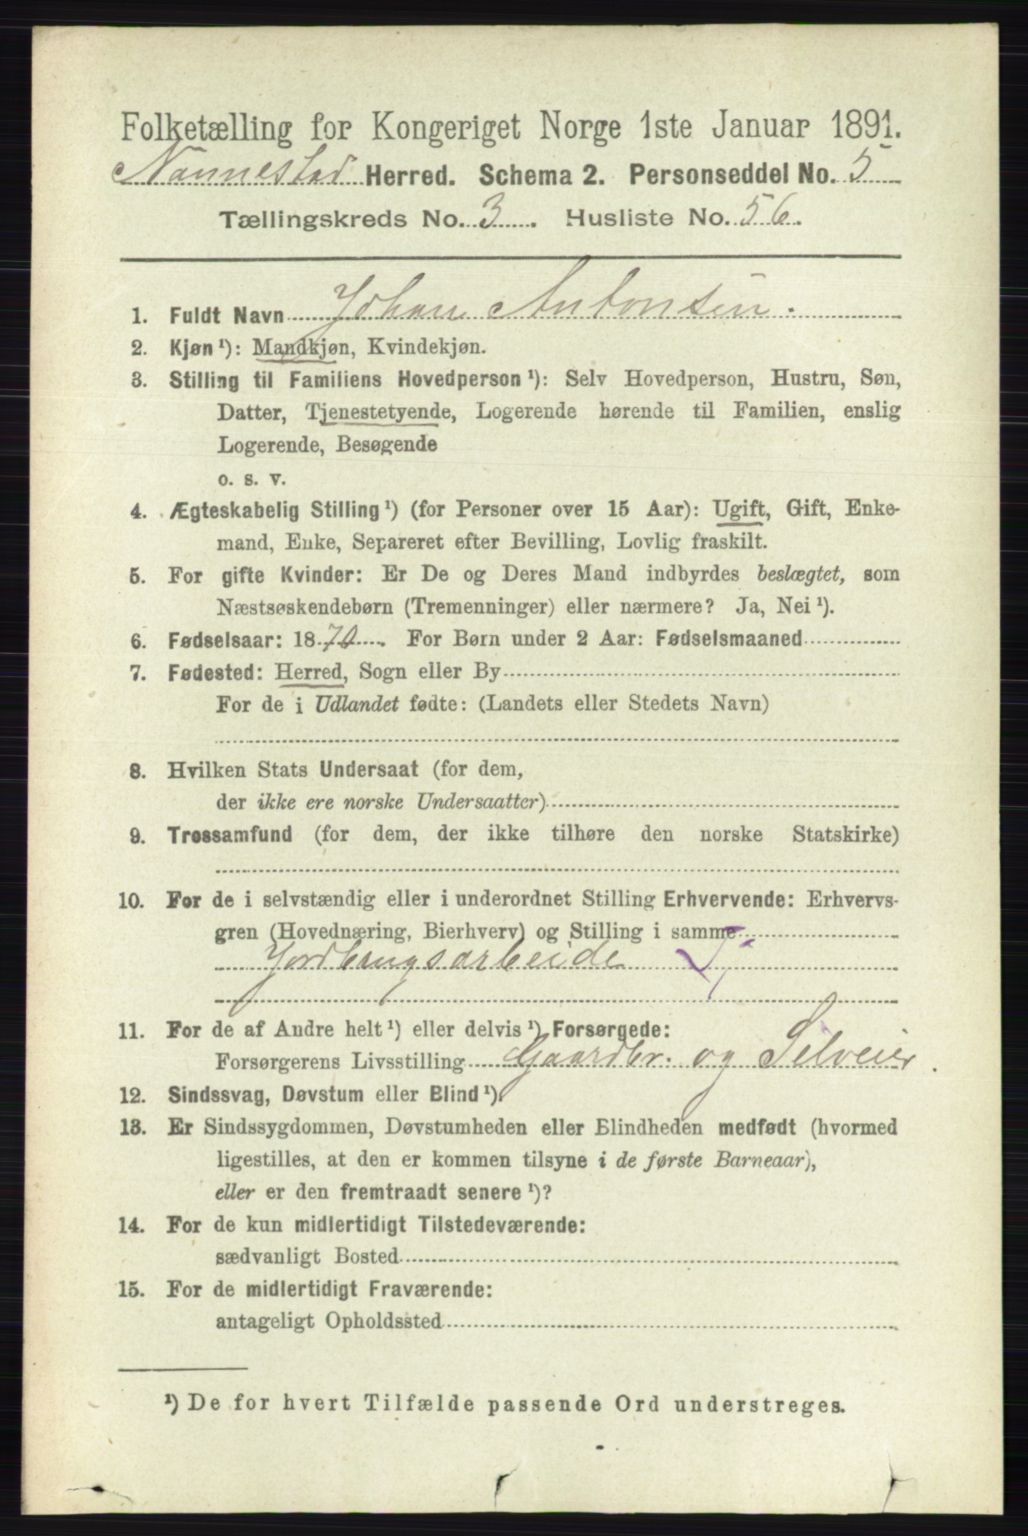 Folketælling for Kongeriget Norge 1ste Januar 1891.
Nannestad Herred. Schema 2. Personseddel No. 5
Tællingskreds No. 3. Husliste No. 56.
1. Fuldt Navn Johan Antonsen.
2. Kjøn ¹): Mandkjøn, Kvindekjøn.
3. Stilling til Familiens Hovedperson ¹): Selv Hovedperson, Hustru, Søn,
Datter, Tjenestetyende, Logerende hørende til Familien, enslig
Logerende, Besøgende
o. s. v.
4. Ægteskabelig Stilling ¹) (for Personer over 15 Aar): Ugift, Gift, Enke-
mand, Enke, Separeret efter Bevilling, Lovlig fraskilt.
5. For gifte Kvinder: Er De og Deres Mand indbyrdes beslægtet, som
Næstsøskendebørn (Tremenninger) eller nærmere? Ja, Nei ¹).
6. Fødselsaar: 1870. For Børn under 2 Aar: Fødselsmaaned
7. Fødested: Herred, Sogn eller By
For de i Udlandet fødte: (Landets eller Stedets Navn)
8. Hvilken Stats Undersaat (for dem,
der ikke ere norske Undersaatter)
9. Trossamfund (for dem, der ikke tilhøre den norske Statskirke)
10. For de i selvstændig eller i underordnet Stilling Erhvervende: Erhvervs-
gren (Hovednæring, Bierhverv) og Stilling i samme
Jordbrugsarbeide
11. For de af Andre helt ¹) eller delvis ¹) Forsørgede:
Forsørgerens Livsstilling Gaardbr. og Selveier.
12. Sindssvag, Døvstum eller Blind ¹).
13. Er Sindssygdommen, Døvstumheden eller Blindheden medfødt (hvormed
ligestilles, at den er kommen tilsyne i de første Barneaar),
eller er den fremtraadt senere ¹)?
14. For de kun midlertidigt Tilstedeværende:
sædvanligt Bosted
15. For de midlertidigt Fraværende:
antageligt Opholdssted
¹) De for hvert Tilfælde passende Ord understreges.